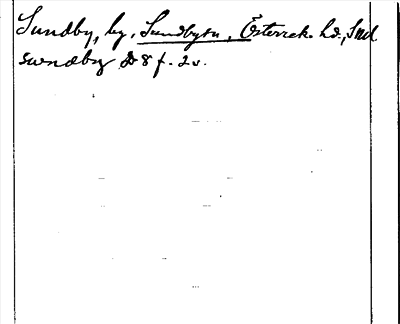 Sundby, by, Sundbyn, Österrek. hd., Smd.
swndby D 8 f. 2 v.